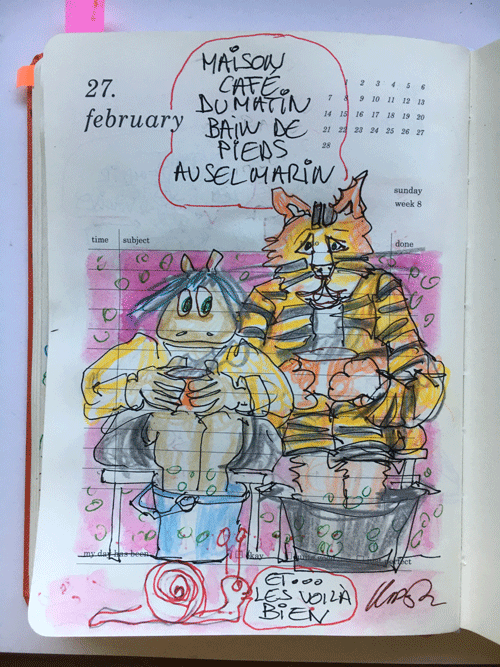 27.
february
MAISON
CAFÉ
DU MATIN
BAIN DE
PIEDS
AU SEL MARIN
1 2 3 4 5 6
7 8 9 10 11 12 13
14 15 16 17 18 19 20
21 22 23 24 25 26 27
28
sunday
week 8
time subject done
my day has been okay
ET...
LES VOILÀ
BIEN